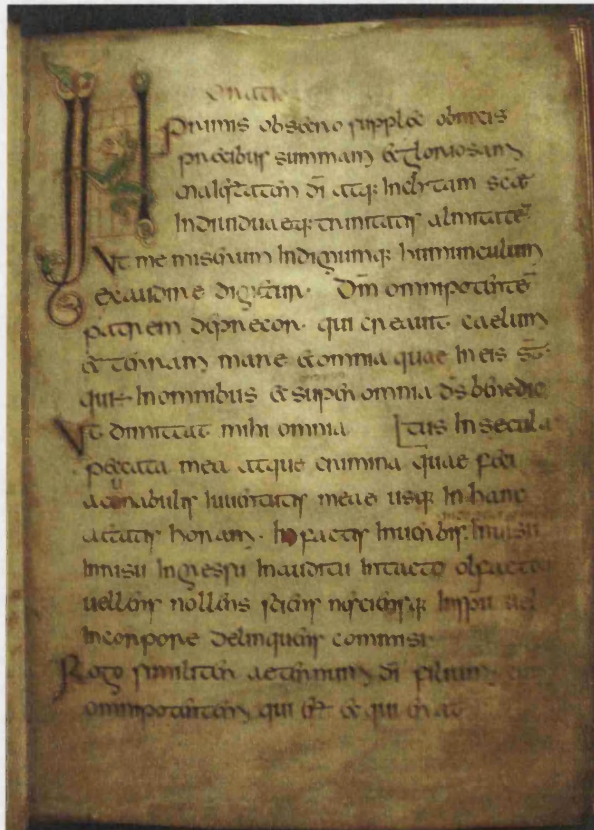 oratio
IN primis obsecro supplex obnixis
praecibus summam & gloriosam
maiestatem di atq; inclitam scae
indiuiduaeq; trinitatis almitatē
Ut me miserum indignumq; humunculum
exaudire dignetur. Dm omnipotentē
patrem deprecor. qui creauit caelum
& terram mare & omnia quae in eis st̄.
qui ÷ in omnibus & super omnia ds benedic
Ut dimittat mihi omnia [tus in secula
peccata mea atque crimina quae feci
a conabulis iuuentutis meae usq; in hanc
aetatis horam. In factis in uerbis. in uisu
in risu in gressu in auditu in tactu olfactu
uellens nollens sciens nesciensq; in spu uel
in corpore delinquens commisi
Rogo similiter aeternum di filium
omnipotentem qui er& & qui erat